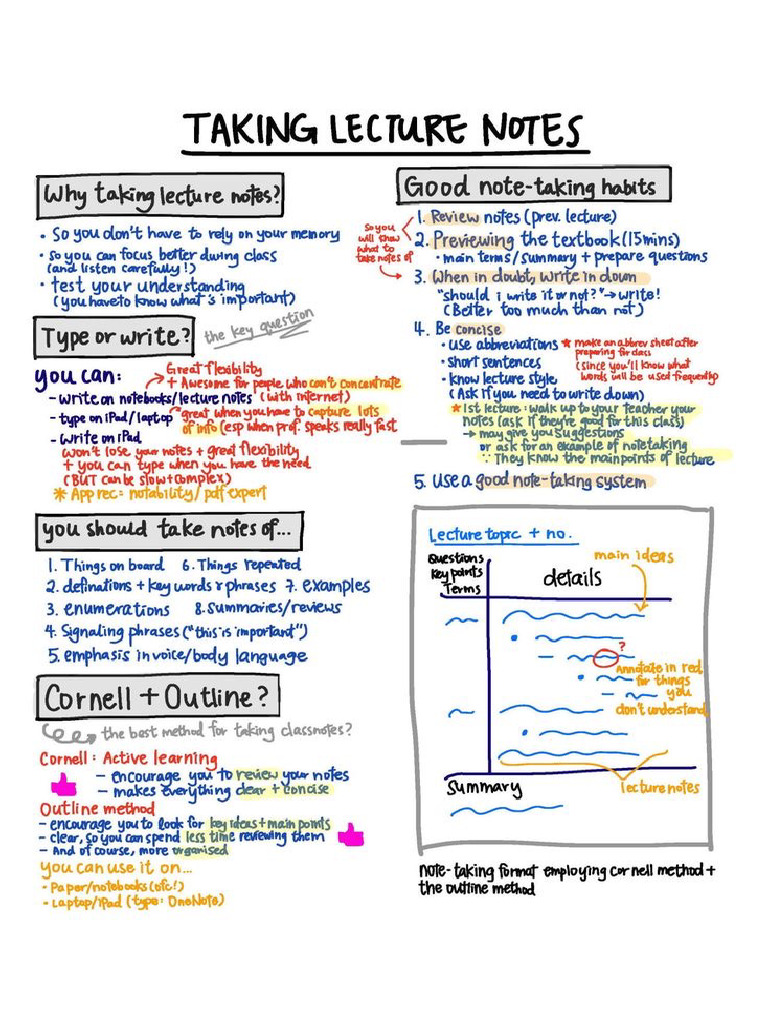 TAKING LECTURE NOTES
Why taking lecture notes?
• So you don't have to rely on your memory
• so you can focus better during class
(and listen carefully!)
• test your understanding
(you have to know what's important)
Type or write?
the key question
you can:
Great flexibility
+ Awesome for people who can't concentrate
- write on notebooks/lecture notes (with internet)
- type on iPad/laptop
great when you have to capture lots
of info (esp when prof. speaks really fast
- write on iPad
won't lose your notes + great flexibility
+ you can type when you have the need
(BUT can be slow + complex)
* App rec: notability/ pdf expert
you should take notes of...
1. Things on board 6. Things repeated
2. definations + key words & phrases 7. examples
3. enumerations 8. summaries/reviews
4. Signaling phrases ("this is important")
5. emphasis in voice/body language
Cornell + Outline?
the best method for taking classnotes?
Cornell: Active learning
- encourage you to review your notes
- makes everything clear + concise
Outline method
- encourage you to look for key ideas + main points
- clear, so you can spend less time reviewing them
- And of course, more organised
you can use it on...
- Paper/notebooks (ofc!)
- Laptop/iPad (type: OneNote)
Good note-taking habits
1. Review notes (prev. lecture)
So you
will know
what to
take notes of
2. Previewing the textbook (15mins)
• main terms/summary + prepare questions
3. When in doubt, write in down
"should i write it or not?" → write!
(Better too much than not)
4. Be concise
• use abbreviations * make an abbrev sheet after
preparing for class
(since you'll know what
words will be used frequently
• short sentences
• know lecture style
(Ask if you need to write down)
* 1st lecture: walk up to your teacher your
notes (ask if they're good for this class)
→ may give you suggestions
or ask for an example of notetaking
∵ They know the main points of lecture
5. use a good note-taking system
Lecture topic + no.
Questions
key points
Terms
details
main ideas
?
Annotate in red
for things
you
don't understand
Summary
lecture notes
note-taking format employing cornell method +
the outline method